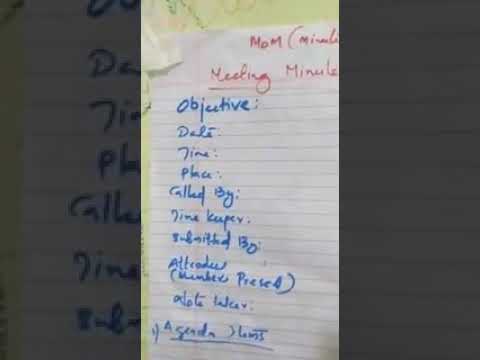 MOM (Minute
Meeting Minute
Objective:
Date:
Time:
Place:
Called By:
Time keeper:
Submitted By:
Attendees :
(Member Present)
Note taker:
1) Agenda Items